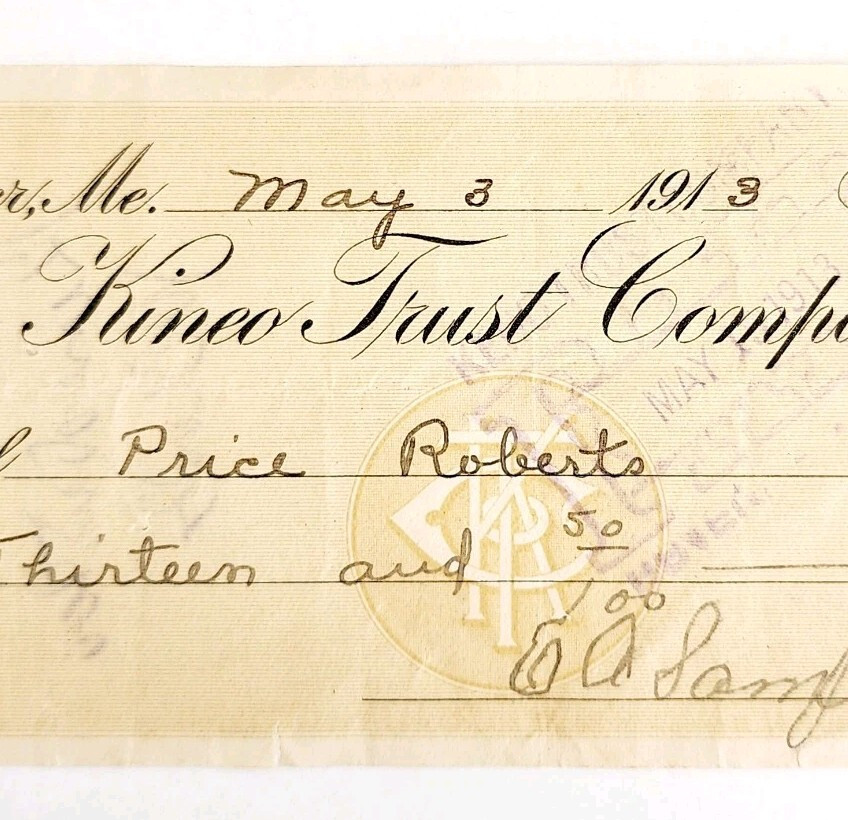 r, Me. May 3 1913
Kineo Trust Comp
Price Roberts
Thirteen and 50/100
E A Samp
MAY 1913